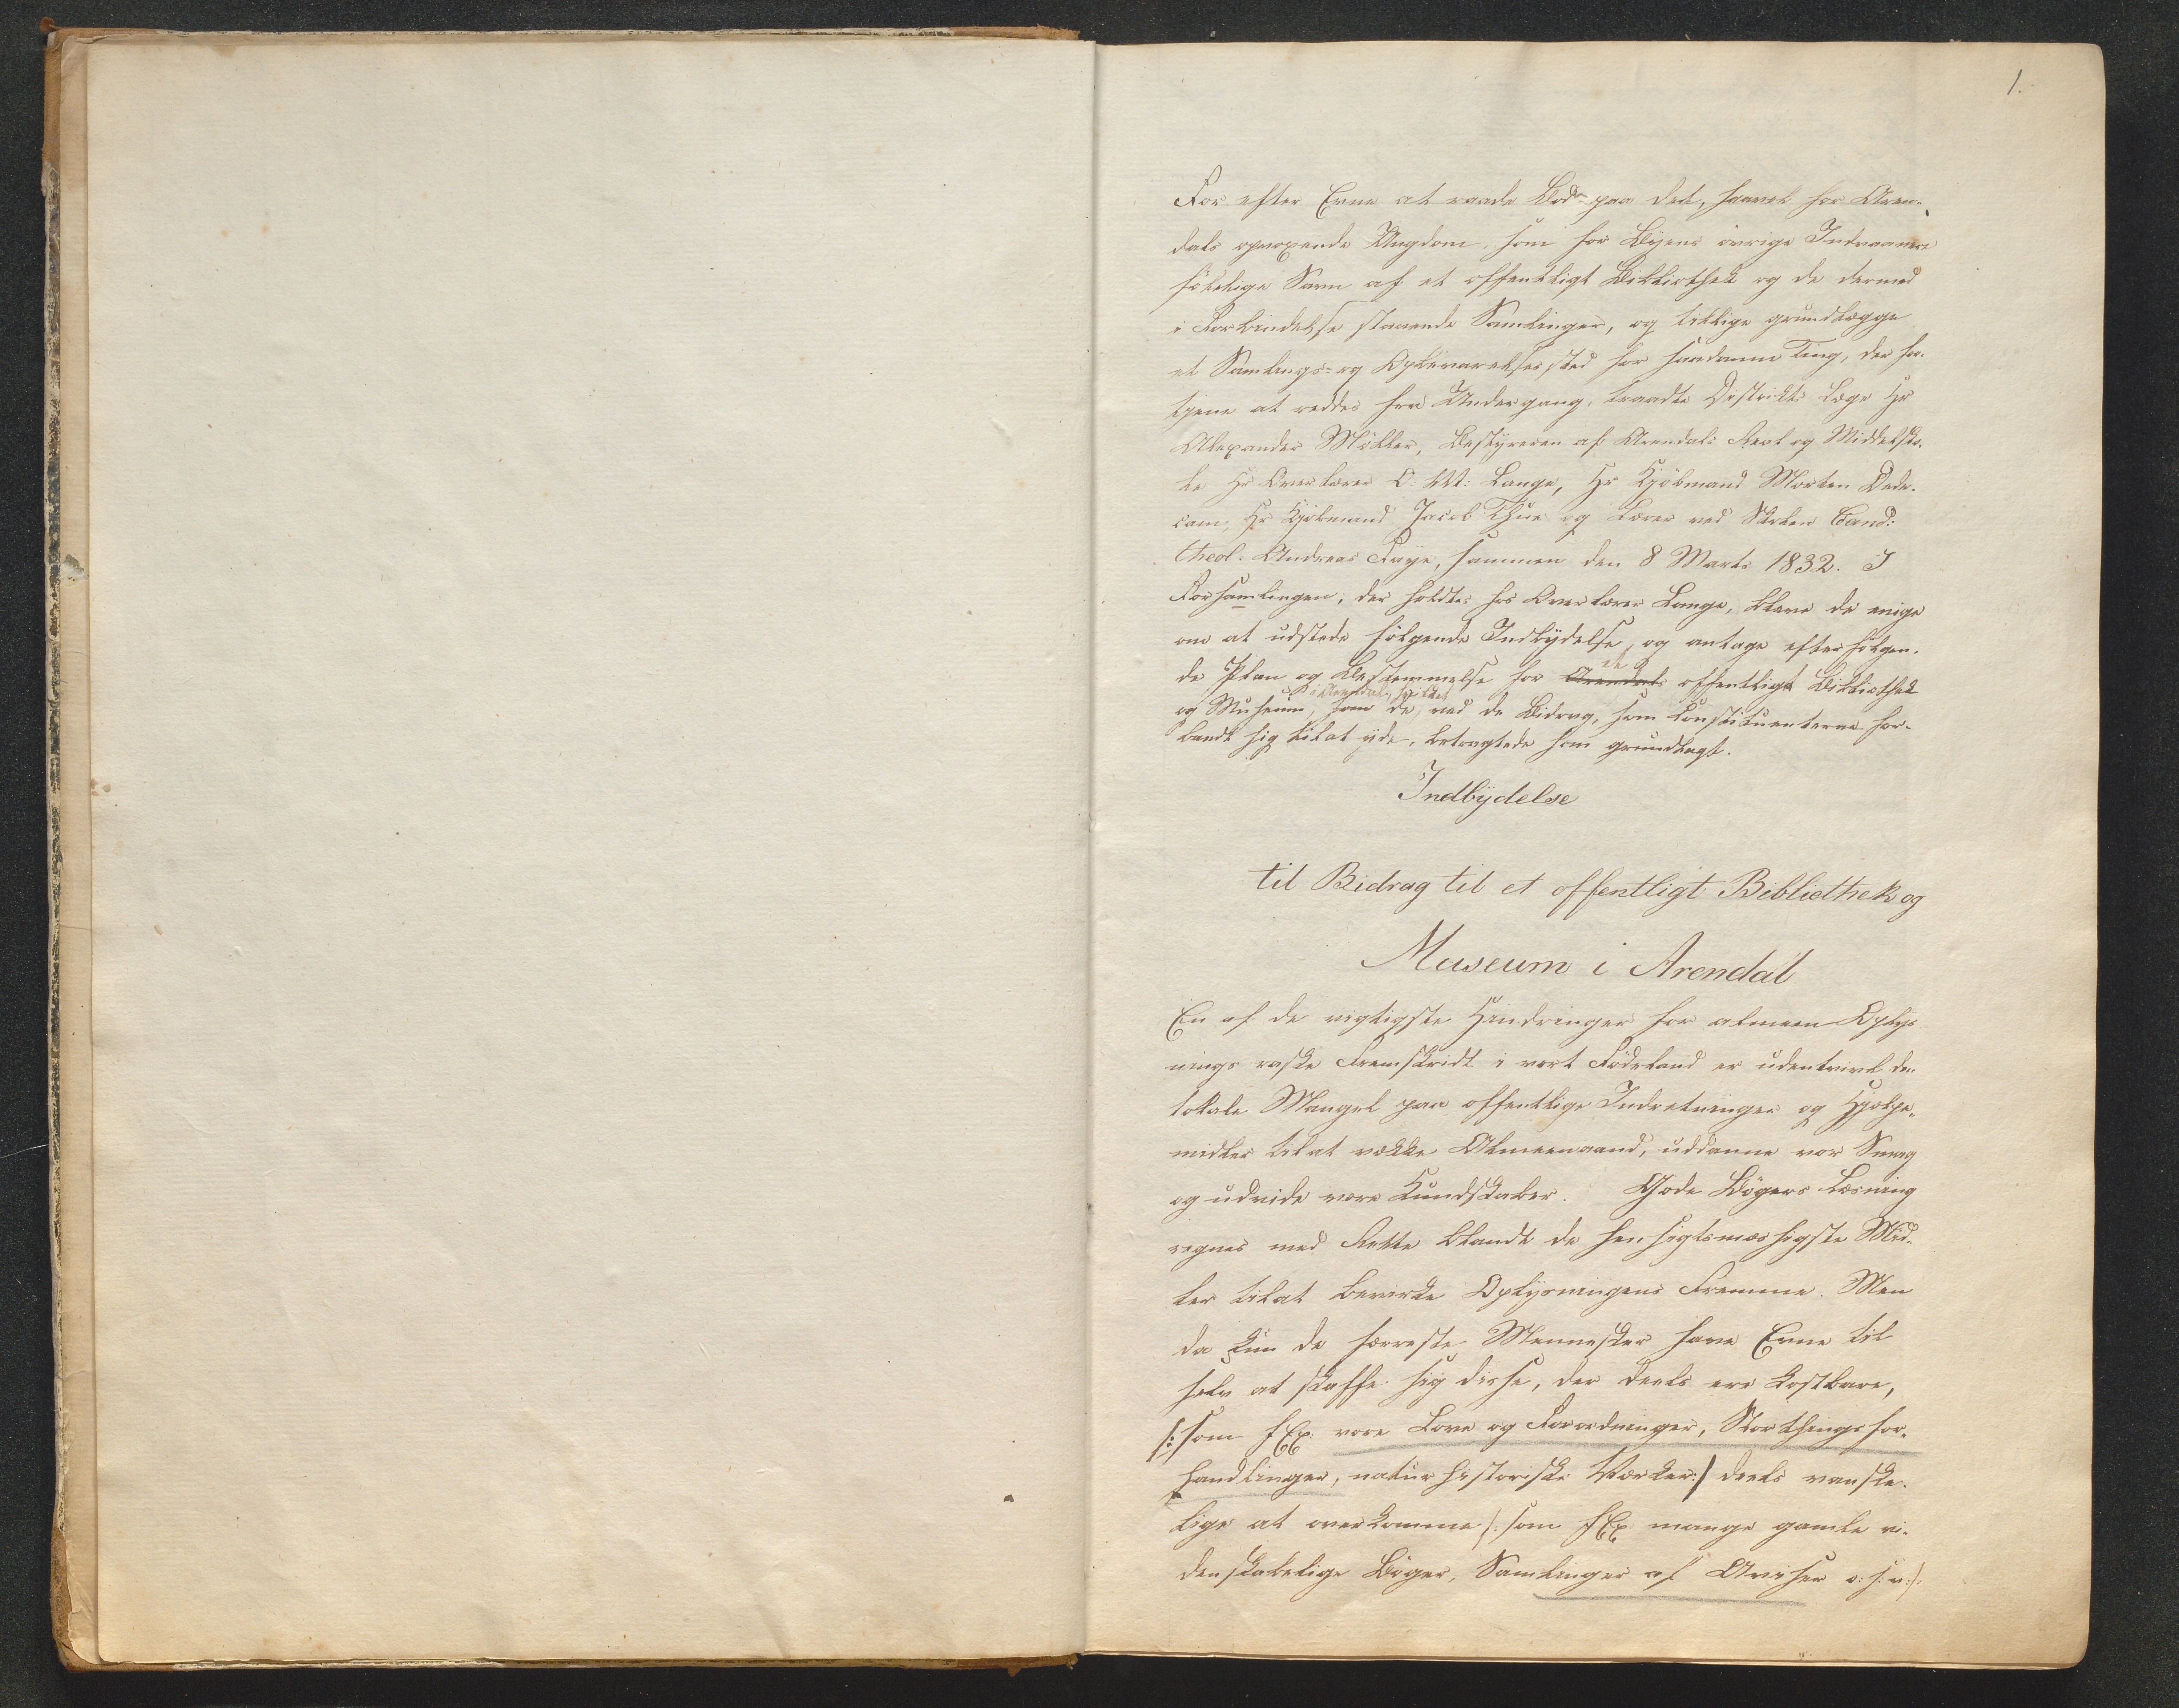 1.
For efter Evne at raade Bod paa det, saavel for Aren-
dals opvoxende Ungdom, som for Byens övrige Indvaanere
fölelige Savn af et offentligt Bibliothek og de dermed
i Forbindelse staaende Samlinger, og tillige grundlægge
et Samlings- og Opbevarelsessted for saadanne Ting, der for-
tjene at reddes fra Undergang, traadte Districts Læge Hr
Alexander Möller, Bestyreren af Arendals Real og Middelsko-
le Hr Overlærer C. M: Lange, Hr Kjöbmand Morten Dede-
cam, Hr Kjöbmand Jacob Thue og Lærer ved Skolen Cand:
theol. Andreas Faye, sammen den 8 Marts 1832. I
Forsamlingen, der holdtes hos Overlærer Lange, bleve de enige
om at udstede fölgende Indbydelse, og antage efterfölgen-
de Plan og Bestemmelse for et Arendals offentligt Bibliothek
og Museum, i Arendal, hvilket som de, ved de Bidrag, som Constituenterne for-
bandt sig til at yde, betragtede som grundlagt.
Indbydelse
til Bidrag til et offentligt Bibliothek og
Museum i Arendal
En af de vigtigste Hindringer for almeen Oplys
nings raske Fremskridt i vort Födeland er udentvivl den
lokale Mangel paa offentlige Indretninger og Hjælpe-
midler til at vække Almeenaand, uddanne vor Smag
og udvide vore Kundskaber. Gode Bögers Læsning
regnes med Rette blandt de hensigtsmæssigste Mid-
ler til at bevirke Oplysningens Fremme. Men
da kun de færreste Mennesker have Evne til
selv at skaffe sig disse, der deels ere kostbare,
/: som f Ex. vore Love og Forordninger, Storthingsfor-
handlinger, naturhistoriske Værker :/ deels vanske-
lige at overkomme /: som f Ex mange gamle vi-
denskabelige Böger, Samlinger af Aviser o: s: v: /: